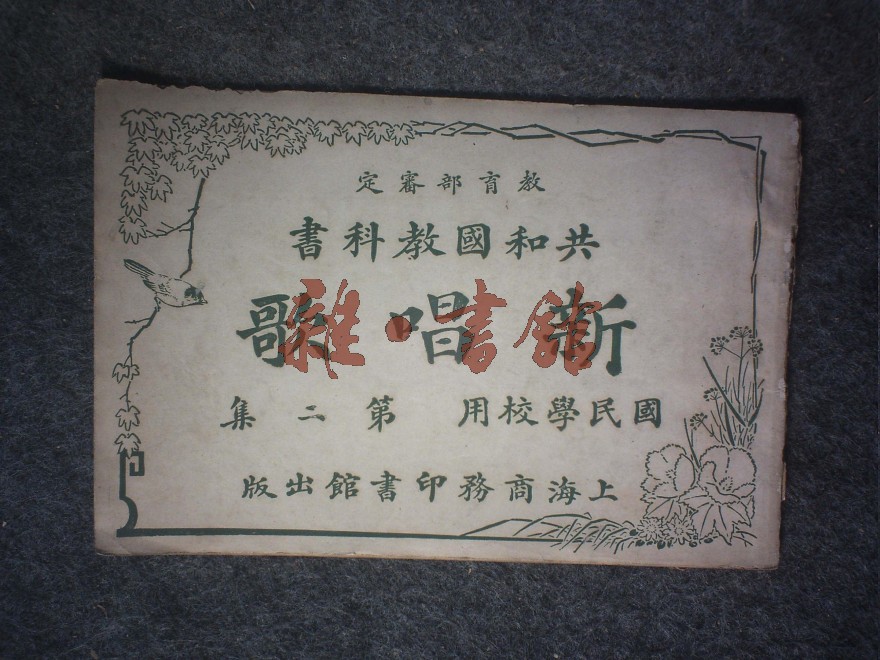 教育部審定
共和國教科書
新唱歌
國民學校用 第二集
上海商務印書館出版
雜·書館